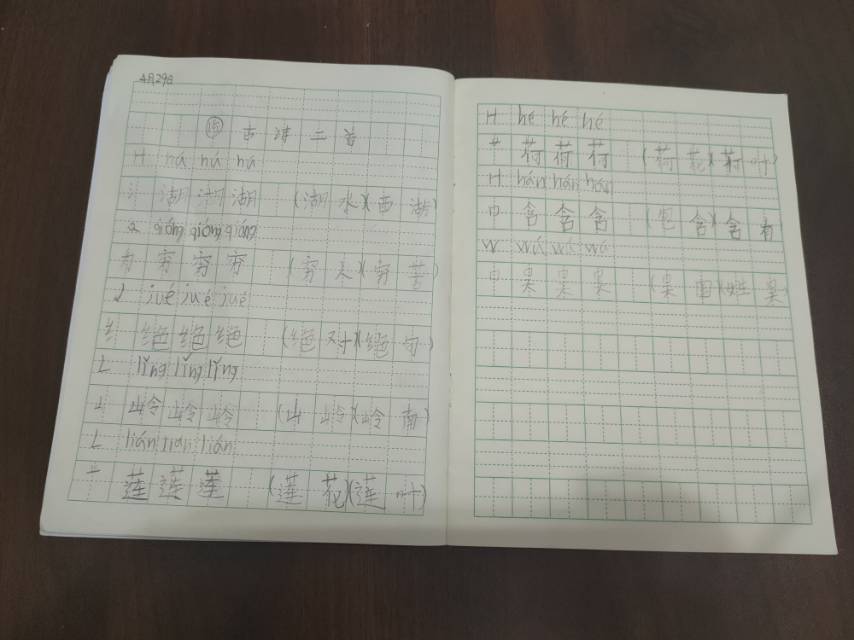 4月29日
⑮ 古诗二首
H hú hú hú
氵 湖 湖 湖 (湖水)(西湖)
Q qióng qióng qióng
穷 穷 穷 (穷人)(穷苦)
J jué jué jué
纟 绝 绝 绝 (绝对)(绝句)
L lǐng lǐng lǐng
山 岭 岭 岭 (山岭)(岭南)
L lián lián lián
艹 莲 莲 莲 (莲花)(莲叶)
H hé hé hé
艹 荷 荷 荷 (荷花)(荷叶)
H hán hán hán
口 含 含 含 (包含)(含有)
W wú wú wú
口 吴 吴 吴 (吴国)(姓吴)